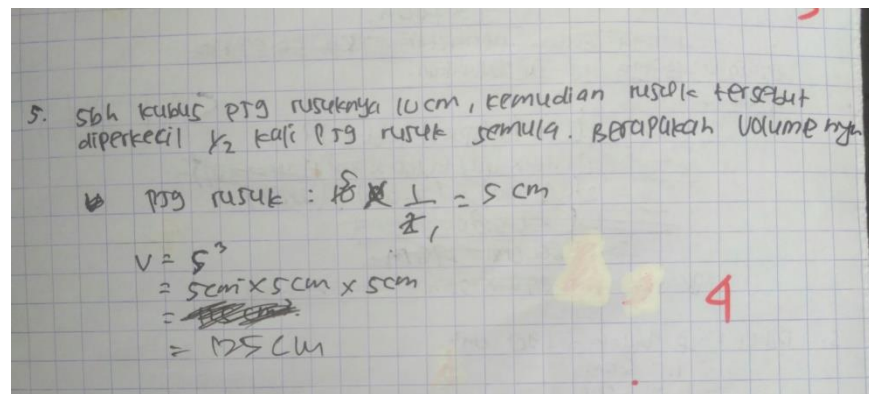 5. Sbh kubus pjg rusuknya 10 cm, kemudian rusuk tersebut
diperkecil 1/2 kali pjg rusuk semula. Berapakah Volumenya
pjg rusuk : 10 5 x 1/2 1 = 5 cm
V = S³
= 5cm x 5cm x 5cm
=
= 125 cm
4